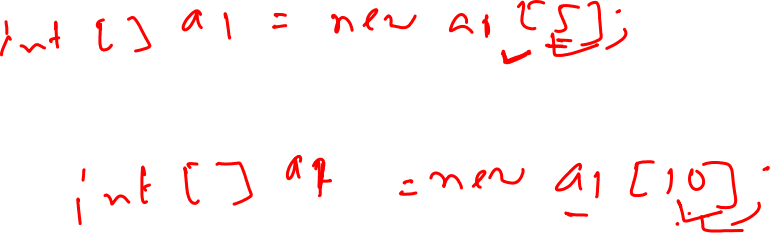 int [] a1 = new a1[5];
int [] a1 = new a1 [10];